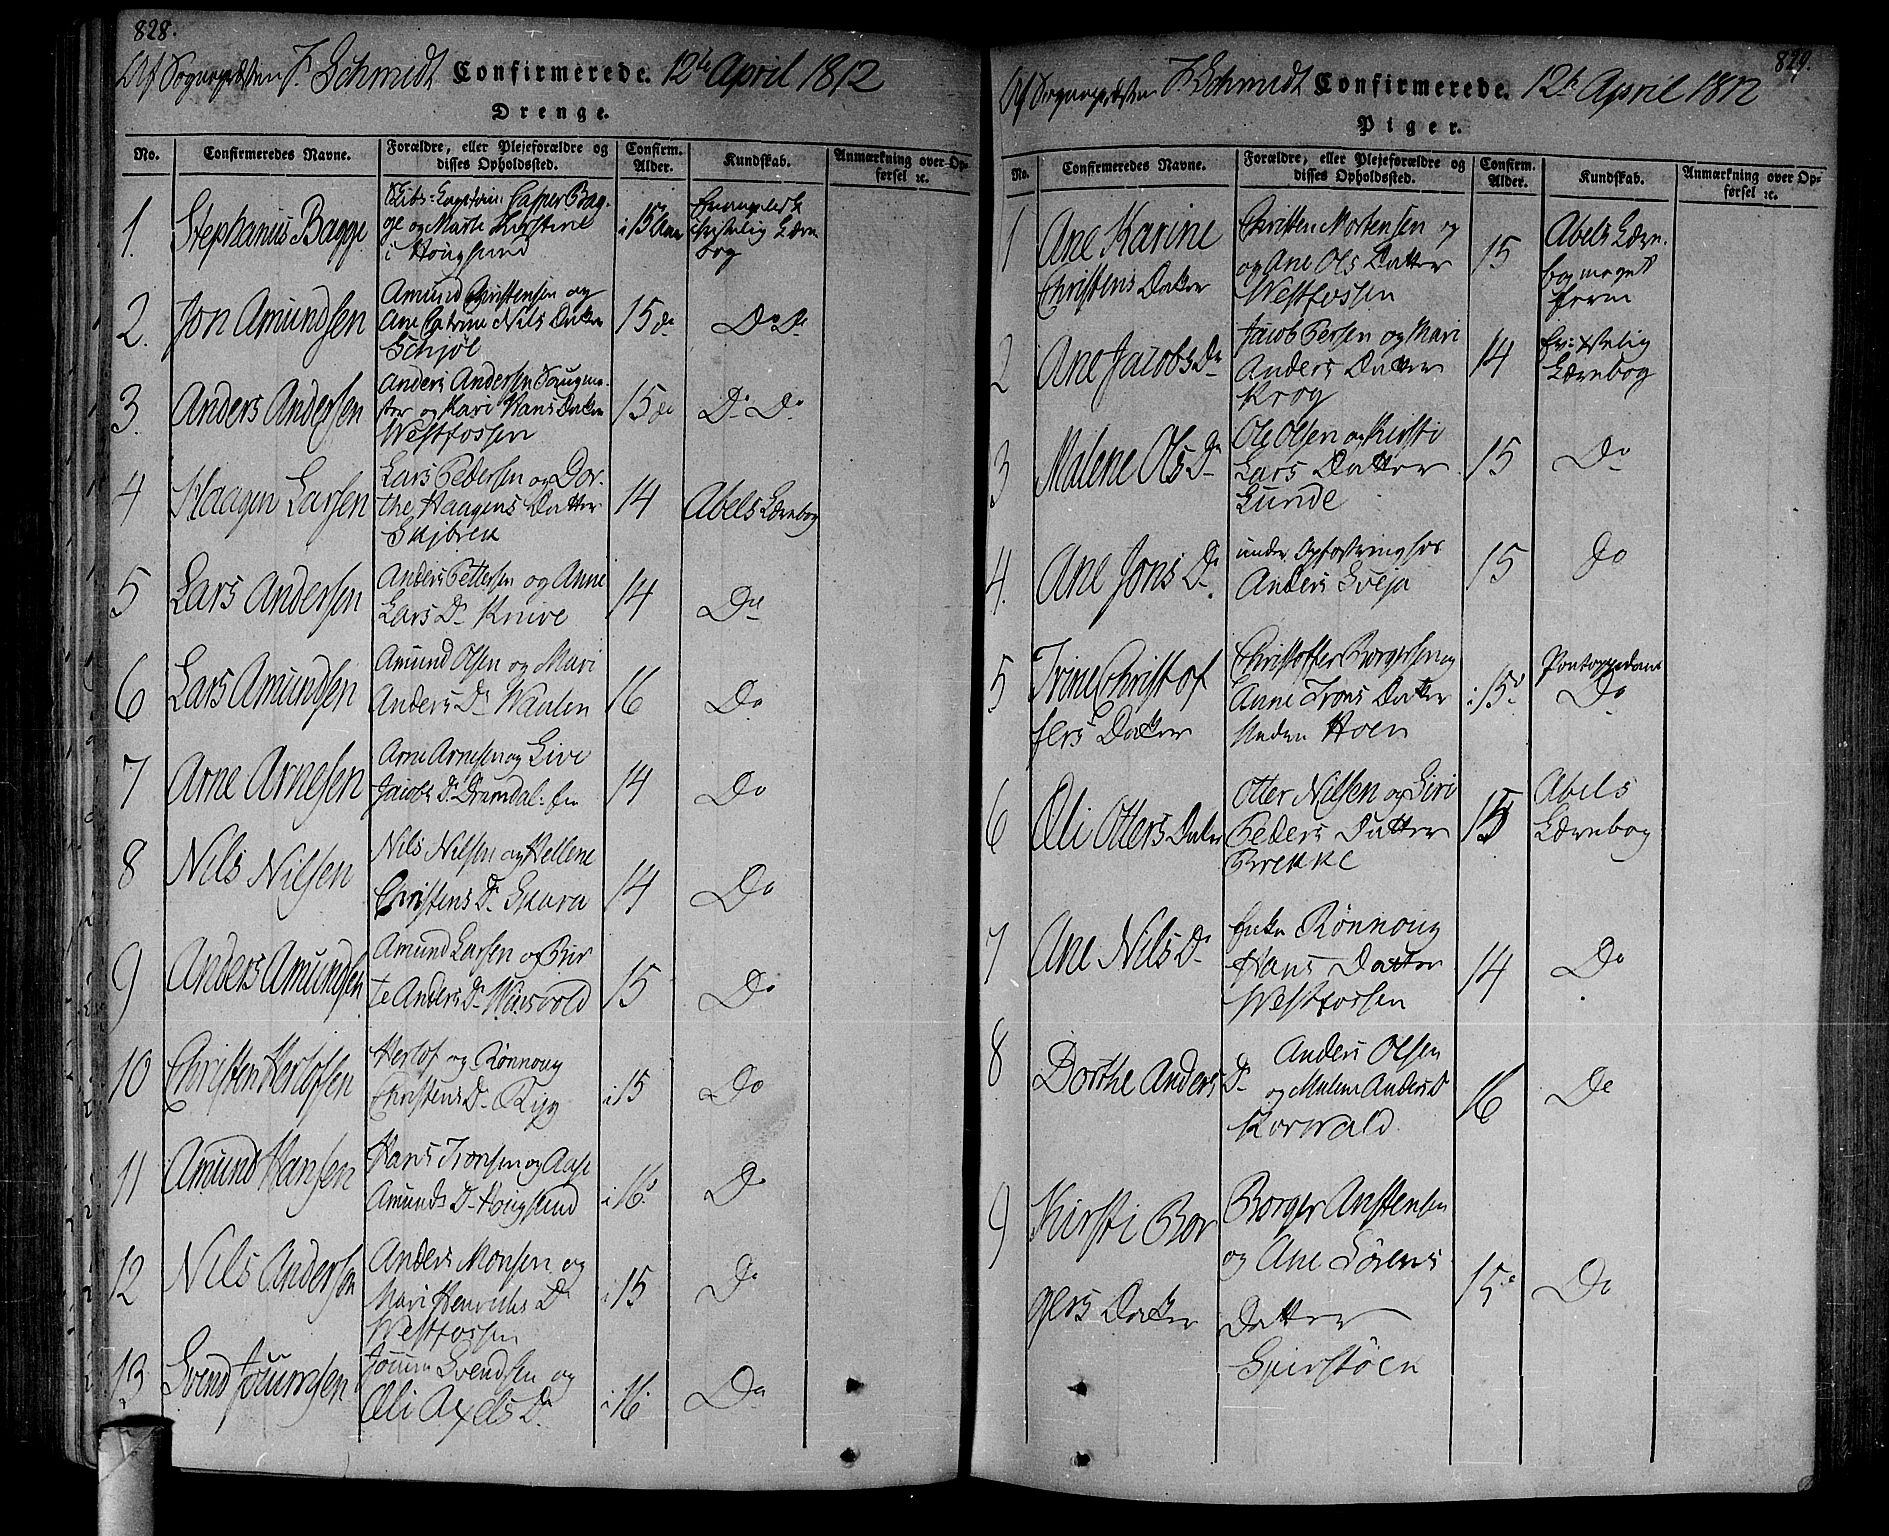 828.
Af Sognepresten F. Schmidt Confirmerede. 12te April 1812
Drenge.
No.
Confirmeredes Navne.
Forældre, eller Plejeforældre og
disses Opholdssted.
Confirm.
Alder.
Kundskab.
Anmærkning over Op-
førsel ꝛc.
1.
Stephanus Bagge
Skibs- Casper Bag-
ge og Marte Kirstine
i Hougsund
i 15 Aar
christelig Lære
bog
2.
Jon Amundsen
Amund Christensen og
Ane Catrine Nils Datter
Schjøl
15 de
Do Do
3.
Anders Andersen
Anders Andersen Saugme-
ster og Kari Hans Datter
Westfossen
15 de
Do Do
4
Haagen Larsen
Lars Pedersen og Dor-
the Haagens Datter
Skjbrek
14
Abels Lærebog
5
Lars Andersen
Anders Pettersen og Anne
Lars Dr Knive
14
Do
6
Lars Amundsen
Amund Olsen og Mari
Anders Dr
16
Do
7
Arne Arnesen
Arne Arnesen og Live
Jacobs Dr
14
Do
8
Nils Nilsen
Nils Nilsen og Hellene
Christens Dr Skara
14
Do
9
Anders Amundsen
Amund Larsen og Bir
te Anders Dr
15
Do
10
Christen Herlofsen
Herlof og Rønnoug
Christens Dr Rigg
i 15
Do
11
Amund Hansen
Hans Tronsen og Aase
Amunds Dr Hougsund
i 16.
Do
12
Nils Andersen
Anders Monsen og
Mari Henrichs Dr
Westfossen
i 15
Do
13
Svend Joumsen
Joum Svendsen og
Oli Axels Dr
i 16.
Do
829.
Af Sognepresten F. Schmidt Confirmerede. 12te April 1812
Piger.
No.
Confirmeredes Navne.
Forældre, eller Plejeforældre og
disses Opholdssted.
Confirm.
Alder.
Kundskab.
Anmærkning over Op-
førsel ꝛc.
1
Ane Karine
Christens Datter
Christen Mortensen og
og Ane Ols Datter
Westfossen
15
Abels Lære-
bog meget
2
Ane Jacobs Dr
Jacob Persen og Mari
Anders Datter
Krog
14
Lærebog
3
Malene Ols Dr
Ole Olsen og Kirsti
Lars Datter
Lunde
15
Do
4.
Ane Jons Dr
under Opfostring hos
Anders Sveja
15
Do
5
Trine Christof
fers Datter
Christoffer Borgersen og
Anne Trons Datter
Hoen
i 15.
Pontoppidans
Do
6
Oli Otters Datter
Otter Nilsen og Siri
Peders Datter
Brekke
15
Abels
Lærebog
7
Ane Nils Dr
Enke Rønnoug
Hans Datter
Westfossen
14
Do
8
Dorthe Anders Dr
Anders Olsen
og Malene Anders D
Korvald
16
Do
9
Kirsti Bor
gers Datter
Borger Anstensen
og Ane Sørens
Datter
15.
Do